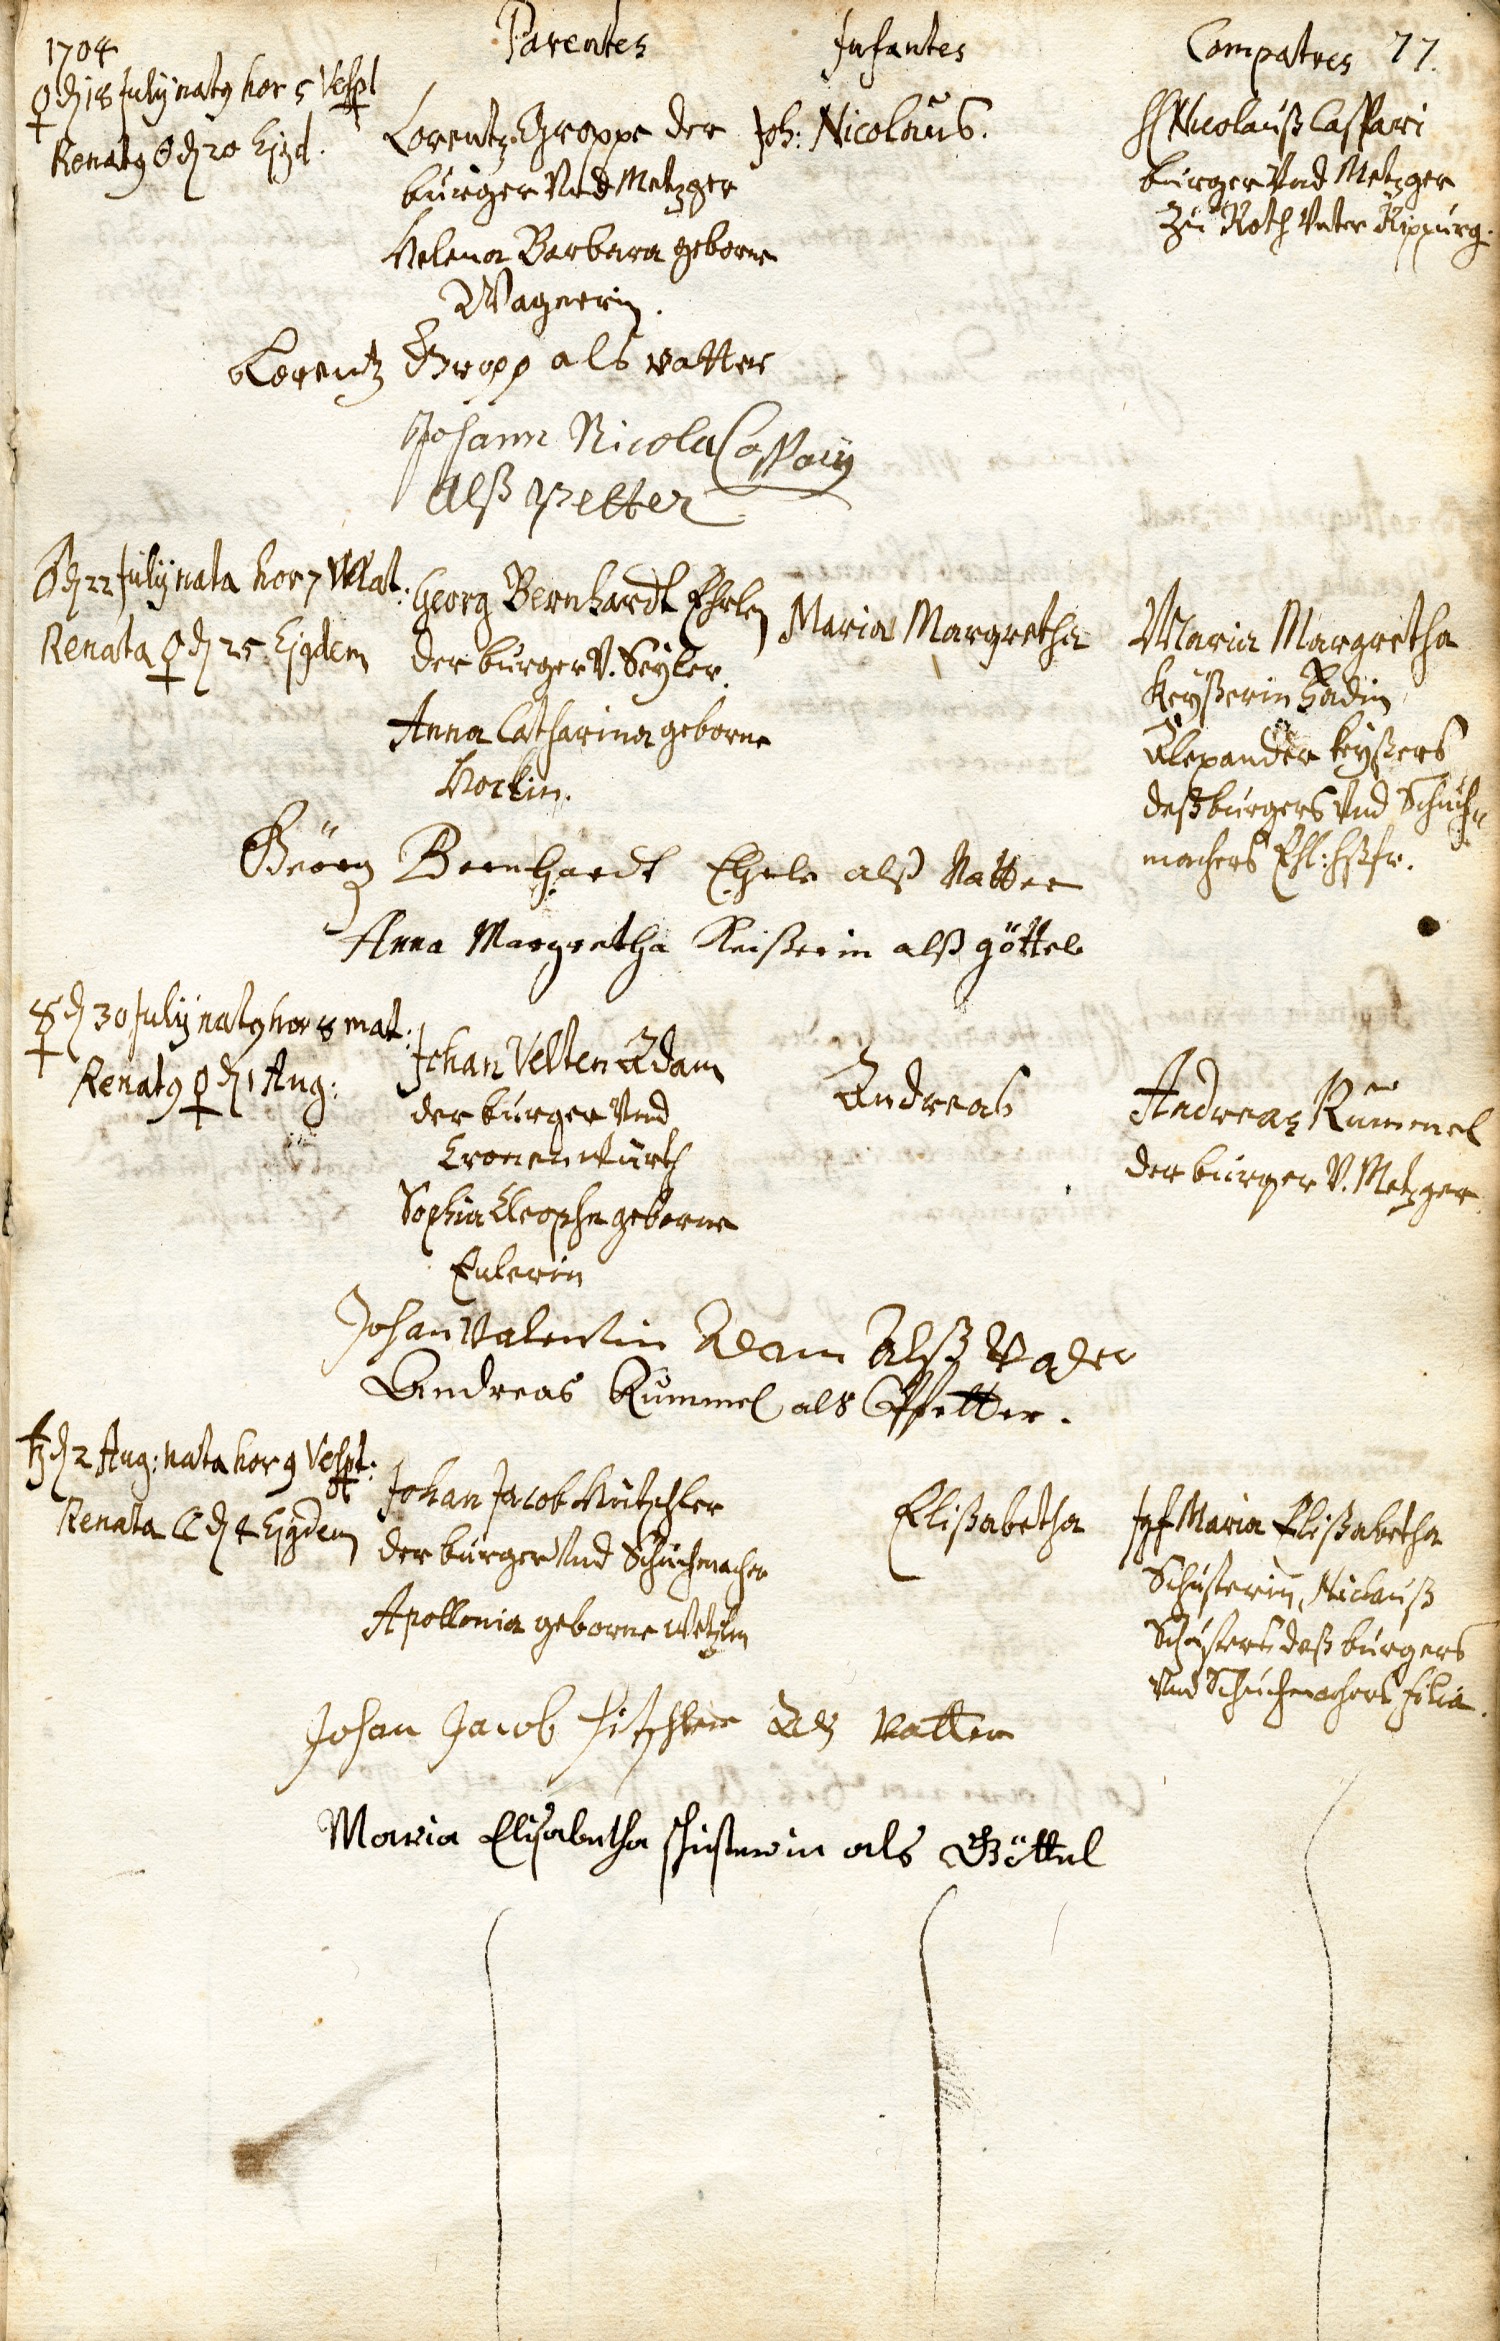 1704
Parentes
Infantes
Compatres 77.
♀ d 18 July natq hor 5 Vespt
Renatq ☉ d 20 Ejqd.
Lorentz Groppe der
burger Vnd Metzger
Helena Barbara geborne
Wagnerin.
Joh: Nicolaus.
H Nicolauß Caspari
burger Vnd Metzger
zu Roth Vnter Rippurg.
Lorentz Gropp als vatter
Johann Nicola Caspary
Alß Petter
d 22 July nata hor 7 Mat:
Renata ♀ d 25 Ejqdem
Georg Bernhardt Ehrlen
der burger V. Seyler.
Anna Catharina geborne
Hockin.
Maria Margretha
Maria Margretha
Keyßerin
Alexander Keyßers
deß burgers Vnd Schuch
machers Ehl: hßfr.
Geörg Bernhardt Ehrle alß Vatter
Anna Margretha Keißerin alß göttel
☿ d 30 July natq hor 8 mat:
Renatq ♀ d 1 Aug:
Johan Velten Adam
der burger Vnd
Cronenwürth
Sophia Cleophe geborne
Eulerin
Andreas
Andreas Rummel
der burger V. Metzger
Johan Valentin Adam Alß Vader
Andreas Rummel als Pfetter.
♄ d 2 Aug: nata hor 9 Vespt:
Renata ☾ d 4 Ejqdem
Johan Jacob Hütschler
der burger Vnd Schuchmacher
Apollonia geborne
Elißabetha
Jgf Maria Elißabetha
Schusterin, Niclauß
Schusters deß burgers
Vnd Schuchmachers filia.
Johan Jacob Hitschler Als Vatter
Maria Elisabetha schusterin als Göttel